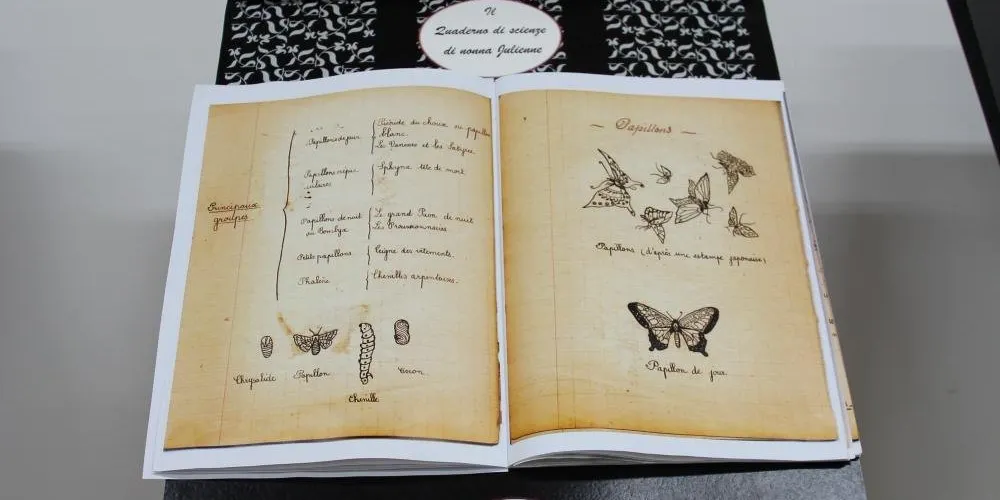 Il
Quaderno di scienze
di nonna Julienne
Principaux
groupes
Papillons de jour
Piéride du choux ou papillon
blanc.
Les Vanesses et les Satyres
Papillons crépus-
culaires
Sphynx tête de mort
Papillons de nuit
ou Bombyx
Le grand Paon de nuit
Les Processionnaires
Petits papillons
Teigne des vêtements.
Phalène
Chenilles arpenteuses.
Chrysalide
Papillon
Chenille
Cocon
— Papillons —
Papillons (d'après une estampe japonaise)
Papillon de jour